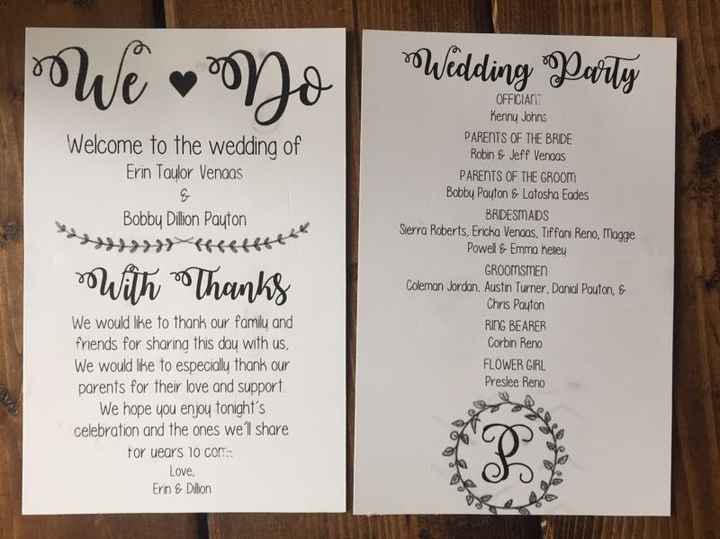 We ♥ Do
Welcome to the wedding of
Erin Taylor Venaas
&
Bobby Dillion Payton
With Thanks
We would like to thank our family and
friends for sharing this day with us,
We would like to especially thank our
parents for their love and support.
We hope you enjoy tonight's
celebration and the ones we'll share
for years to come.
Love,
Erin & Dillion
Wedding Party
OFFICIANT
Kenny Johns
PARENTS OF THE BRIDE
Robin & Jeff Venaas
PARENTS OF THE GROOM
Bobby Payton & Latosha Eades
BRIDESMAIDS
Sierra Roberts, Ericka Venaas, Tiffani Reno, Maggie
Powell & Emma Kelley
GROOMSMEN
Coleman Jordan, Austin Turner, Danial Payton, &
Chris Payton
RING BEARER
Corbin Reno
FLOWER GIRL
Preslee Reno
P